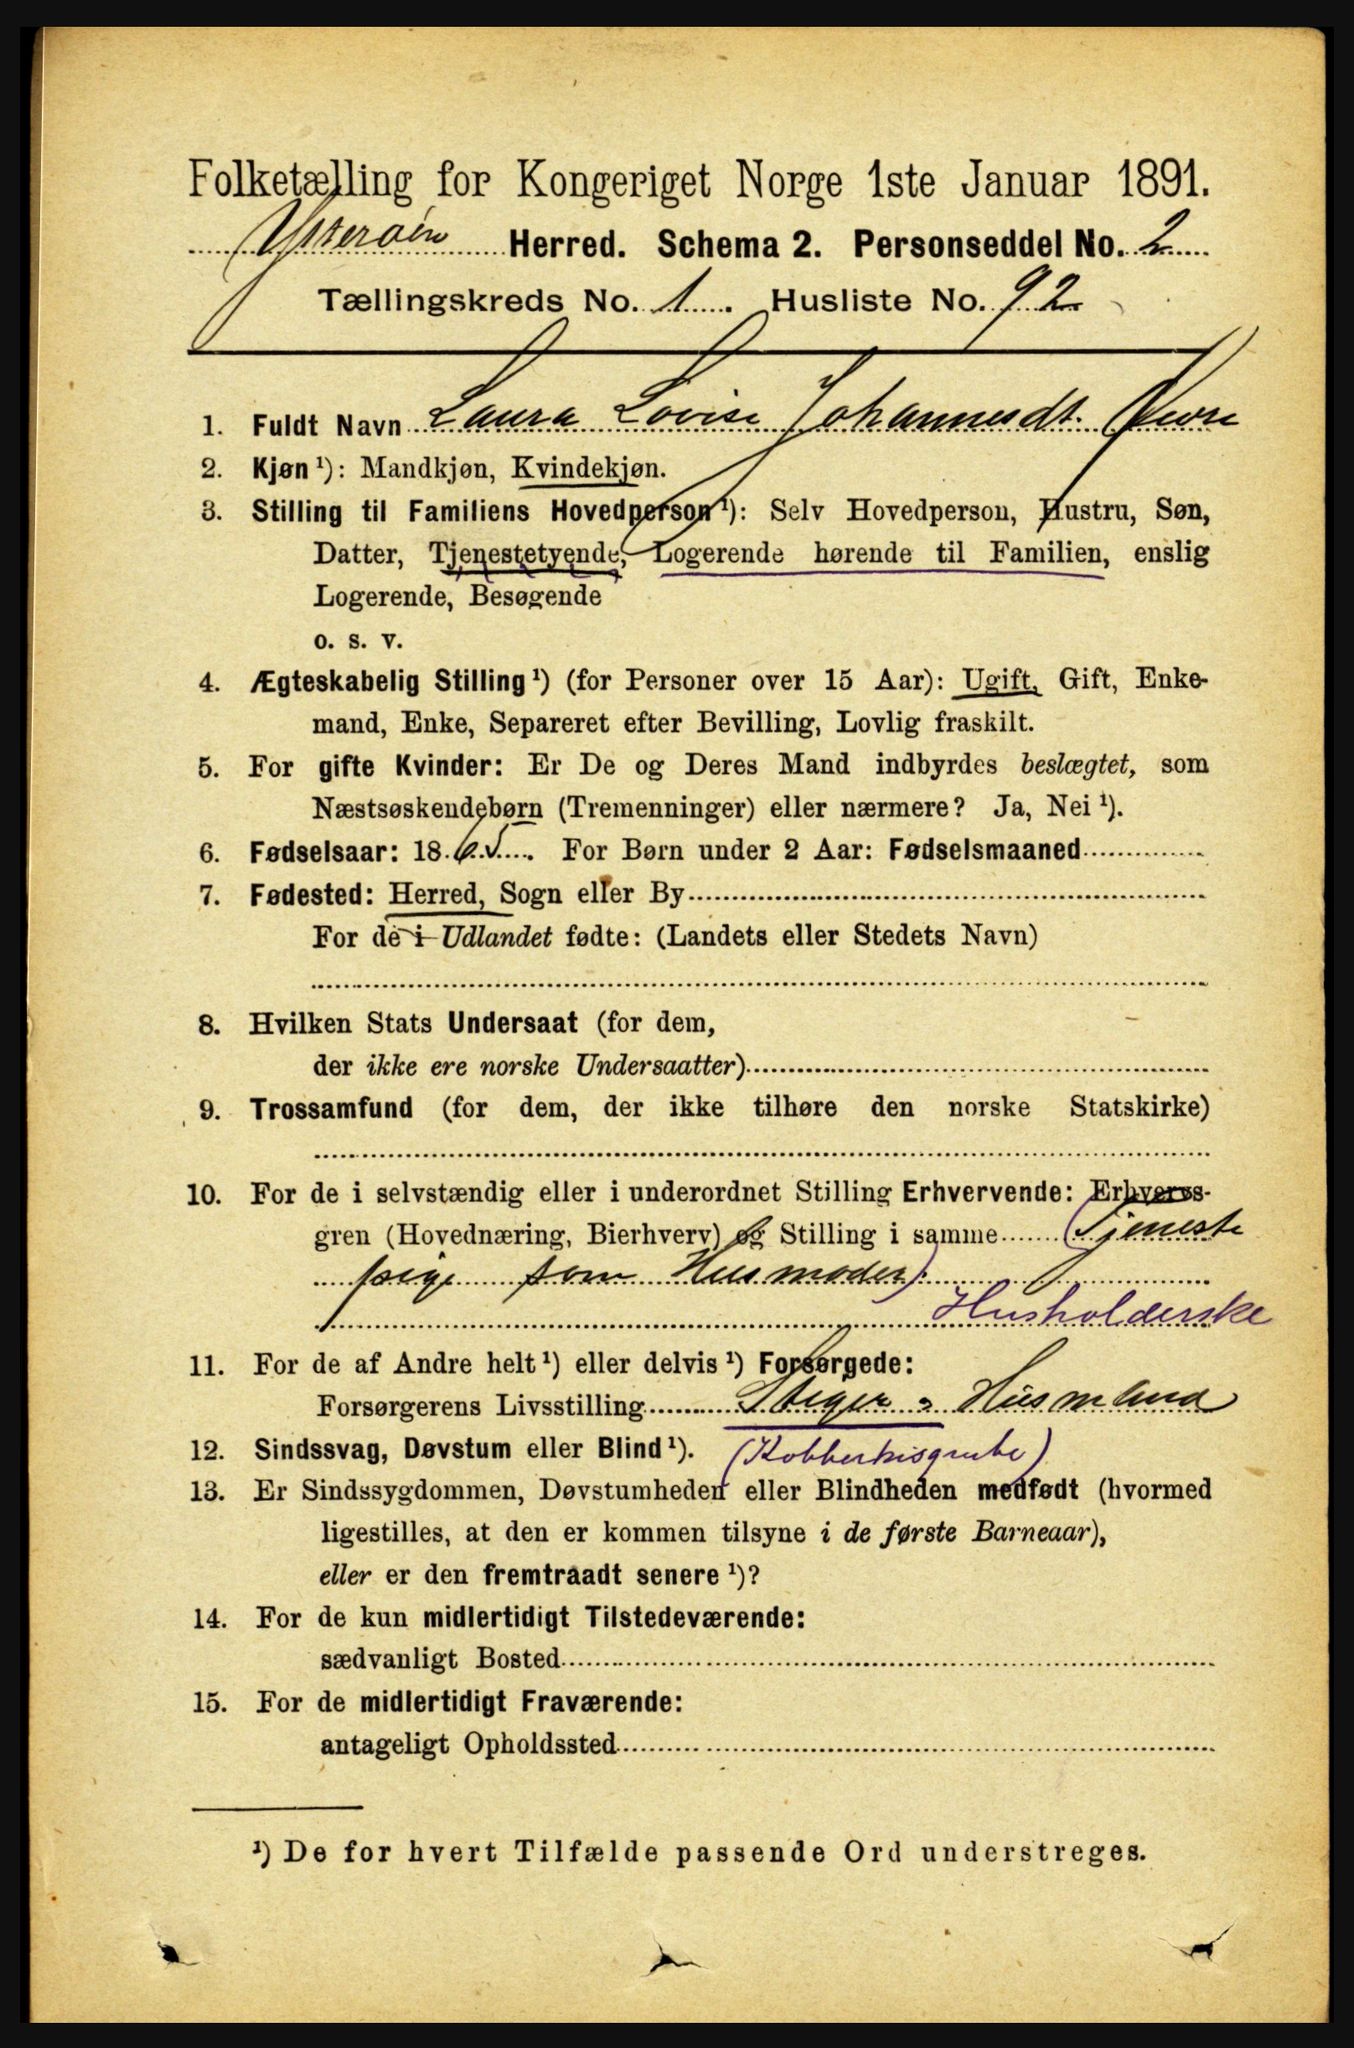 Folketælling for Kongeriget Norge 1ste Januar 1891.
Ytterøen Herred. Schema 2. Personseddel No. 2
Tællingskreds No. 1. Husliste No. 92
1. Fuldt Navn Laura Lovise Johannesdt.
2. Kjøn ¹): Mandkjøn, Kvindekjøn.
3. Stilling til Familiens Hovedperson ¹): Selv Hovedperson, Hustru, Søn,
Datter, Tjenestetyende, Logerende hørende til Familien, enslig
Logerende, Besøgende
o. s. v.
4. Ægteskabelig Stilling ¹) (for Personer over 15 Aar): Ugift, Gift, Enke-
mand, Enke, Separeret efter Bevilling, Lovlig fraskilt.
5. For gifte Kvinder: Er De og Deres Mand indbyrdes beslægtet, som
Næstsøskendebørn (Tremenninger) eller nærmere? Ja, Nei ¹).
6. Fødselsaar: 1865. For Børn under 2 Aar: Fødselsmaaned
7. Fødested: Herred, Sogn eller By
For de i Udlandet fødte: (Landets eller Stedets Navn)
8. Hvilken Stats Undersaat (for dem,
der ikke ere norske Undersaatter)
9. Trossamfund (for dem, der ikke tilhøre den norske Statskirke)
10. For de i selvstændig eller i underordnet Stilling Erhvervende: Erhvervs-
gren (Hovednæring, Bierhverv) og Stilling i samme (Tjeneste
pige som Husmoder)
Husholderske
11. For de af Andre helt ¹) eller delvis ¹) Forsørgede:
Forsørgerens Livsstilling Stiger o Husmand
12. Sindssvag, Døvstum eller Blind ¹). (Kobberkisgrube)
13. Er Sindssygdommen, Døvstumheden eller Blindheden medfødt (hvormed
ligestilles, at den er kommen tilsyne i de første Barneaar),
eller er den fremtraadt senere ¹)?
14. For de kun midlertidigt Tilstedeværende:
sædvanligt Bosted
15. For de midlertidigt Fraværende:
antageligt Opholdssted
¹) De for hvert Tilfælde passende Ord understreges.